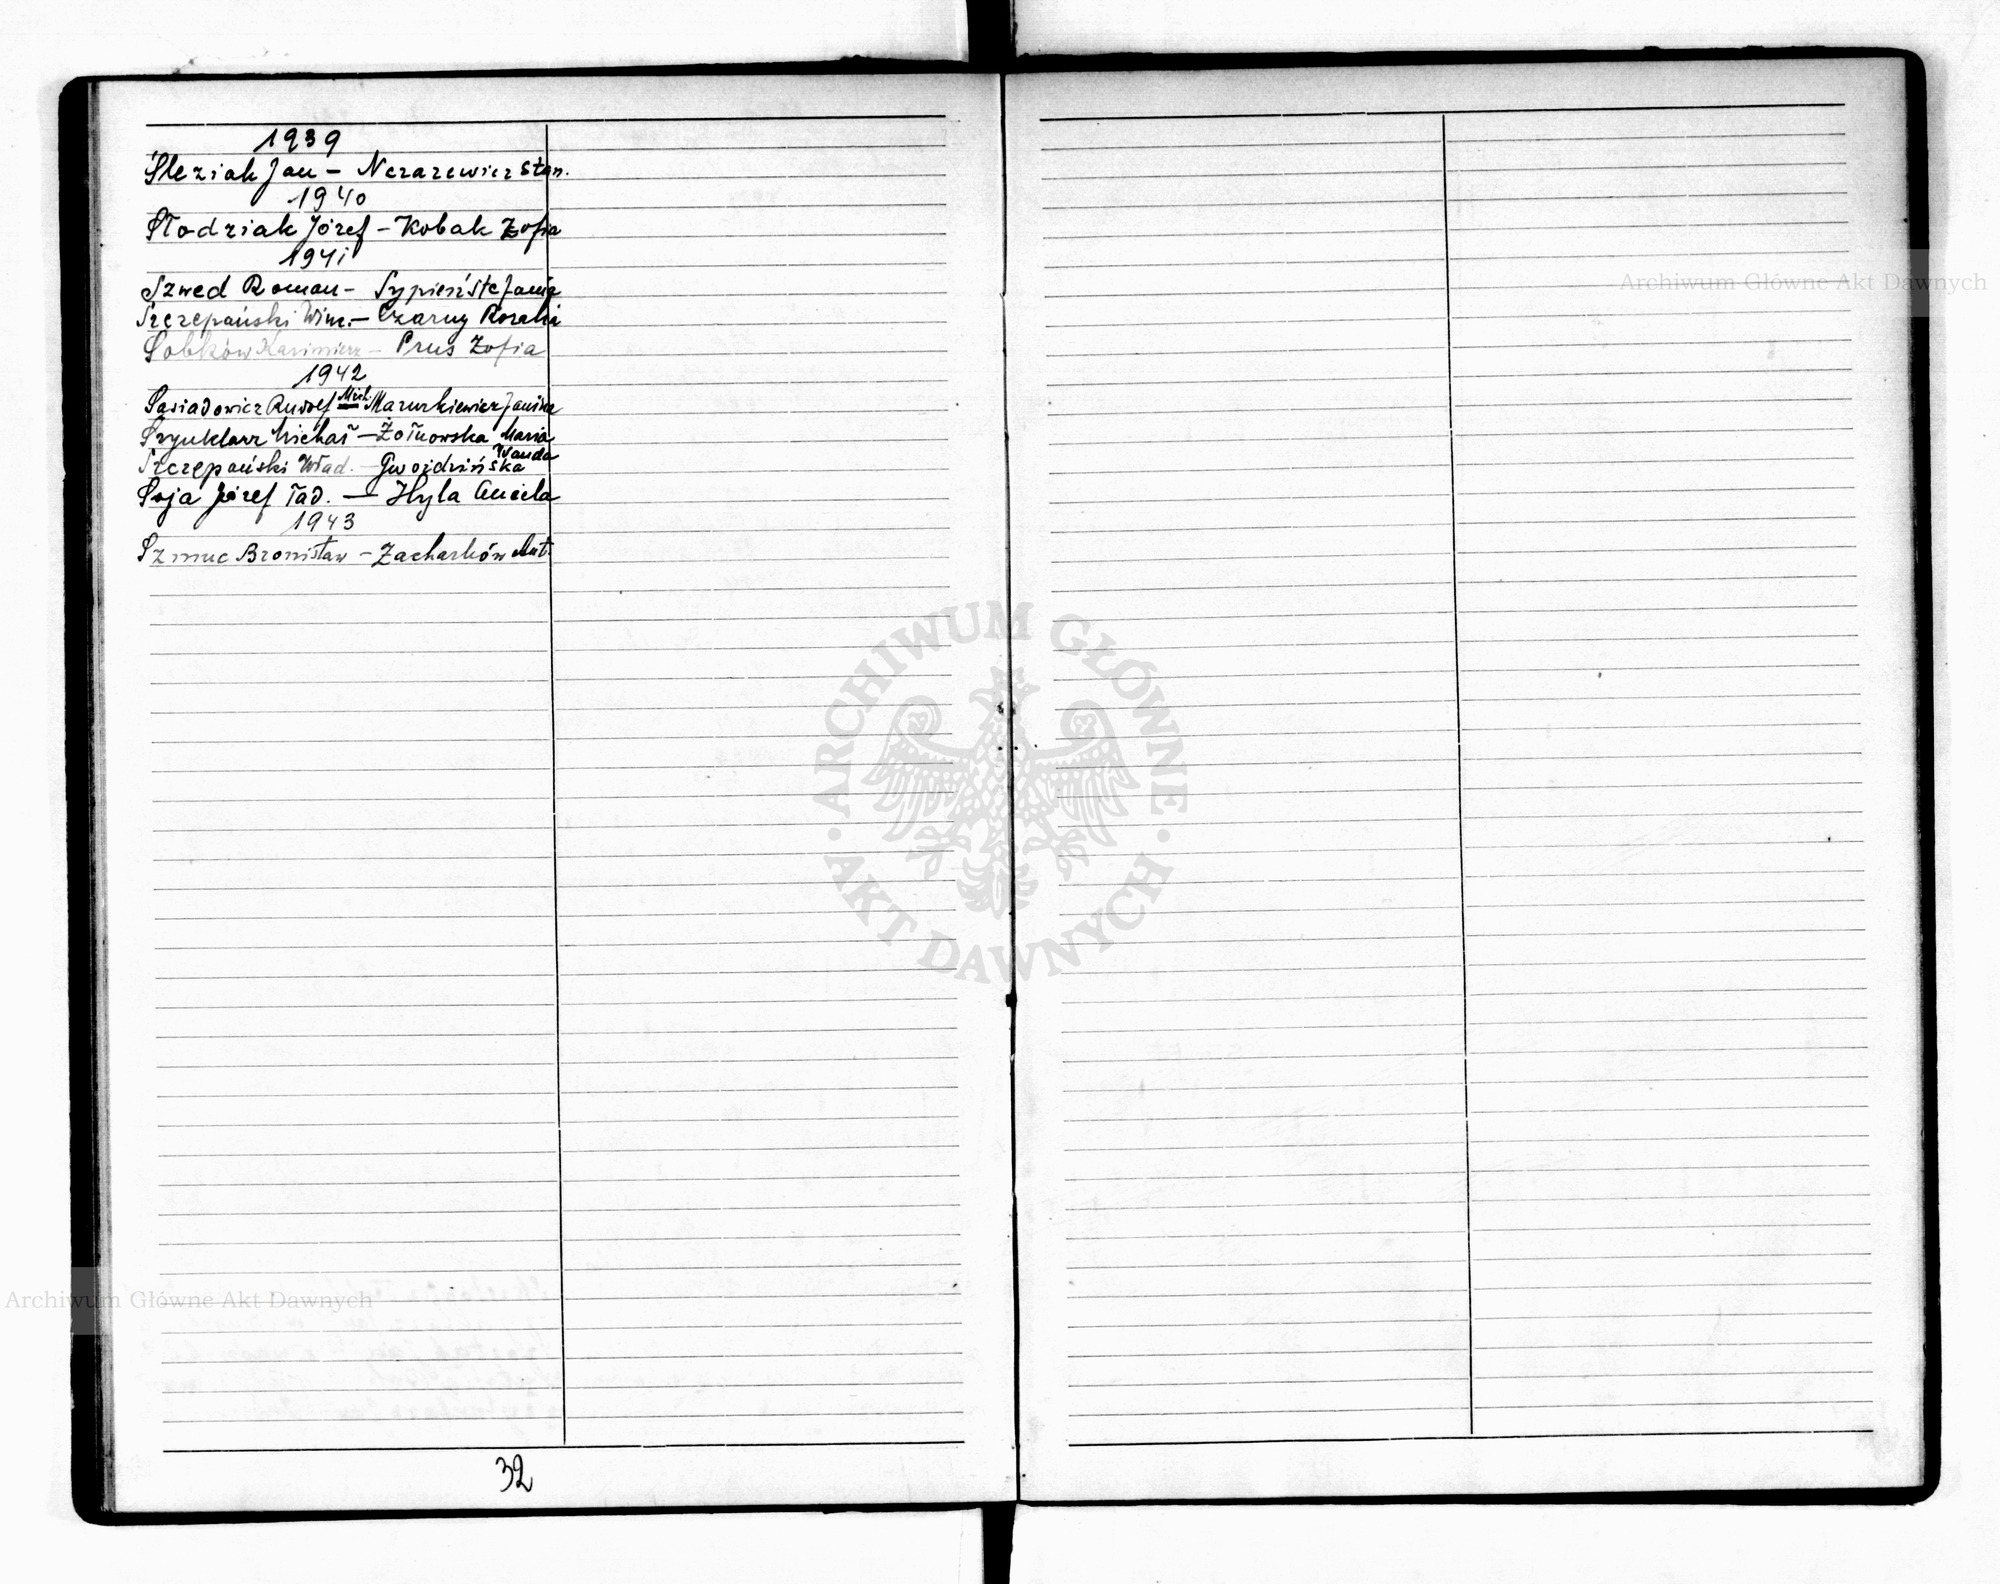 1939
Śleziak Jan – Nczarewicz Stan.
1940
Słodziak Józef – Kobak Zofia
1941
Szwed Roman – Sypień Stefania
Szczepański Winc. – Czarny Rozalia
Sobków Kazimierz – Prus Zofia
1942
Sasiadowicz Rudolf Mich. – Mazurkiewicz Janina
Szynklarz Michał – Żołnowska Maria
Szczepański Wład. – Gwoździńska Wanda
Soja Józef Tad. – Hyla Aniela
1943
Szmuc Bronisław – Zacharków Ant.
32
Archiwum Główne Akt Dawnych
ARCHIWUM GŁÓWNE
AKT DAWNYCH
Archiwum Główne Akt Dawnych